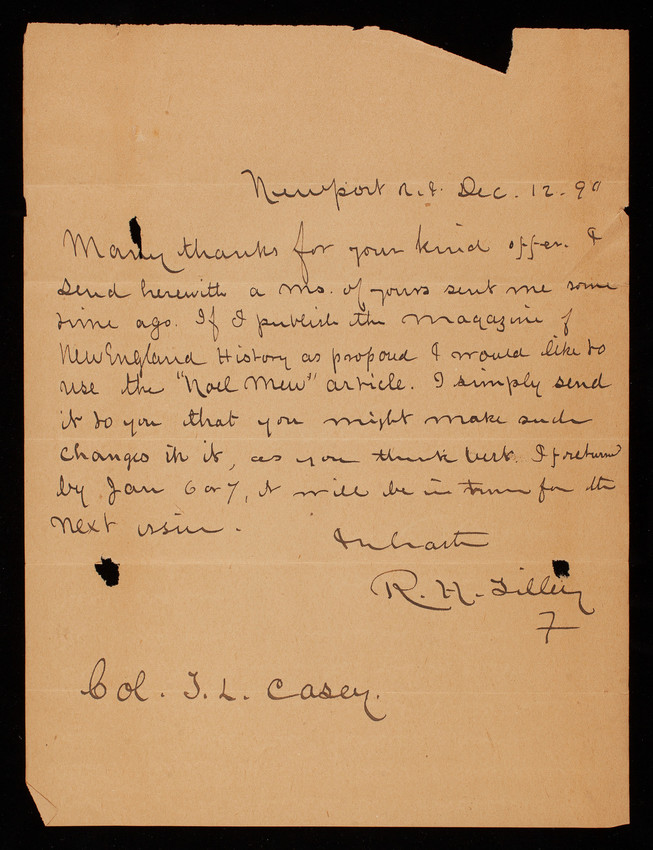 Newport R.I. Dec. 12. 90
Many thanks for your kind offer. I
send herewith a ms. of yours sent me some
time ago. If I publish the magazine of
New England History as proposed I would like to
use the "Noel Mew" article. I simply send
it to you that you might make such
changes in it, as you think best. If returned
by Jan 6 or 7, it will be in time for the
next issue.
In haste
R. H. Tilley
7
Col. T. L. Casey.